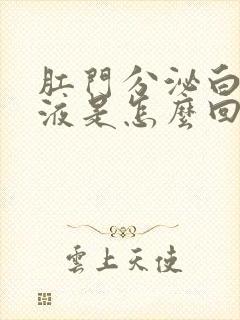 肛門分泌白
液是怎麼回
雲上天使